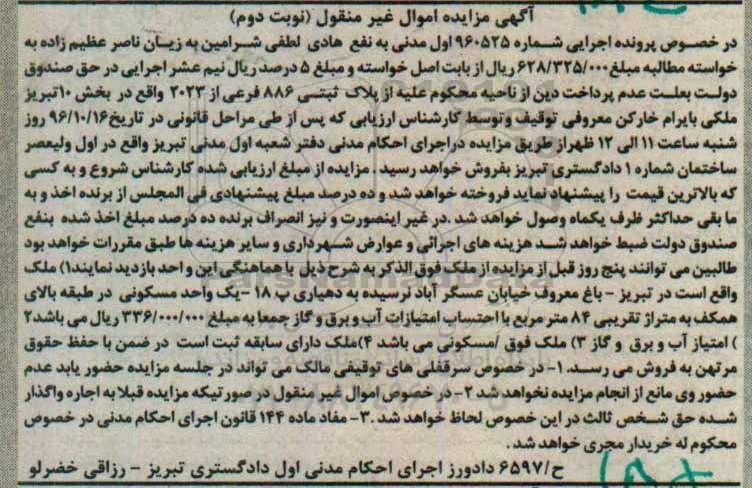 آگهی مزایده اموال غیر منقول (نوبت دوم)
در خصوص پرونده اجرایی شماره ۹۶۰۵۲۵ اول مدنی به نفع هادی لطفی شرامین به زیان ناصر عظیم زاده به
خواسته مطالبه مبلغ ۶۲۸/۳۲۵/۰۰۰ ریال از بابت اصل خواسته و مبلغ ۵ درصد ریال نیم عشر اجرایی در حق صندوق
دولت بعلت عدم پرداخت دین از ناحیه محکوم علیه از پلاک ثبتی ۸۸۶ فرعی از ۲۰۲۳ واقع در بخش ۱۰ تبریز
ملکی بایرام خارکن معروفی توقیف وتوسط کارشناس ارزیابی که پس از طی مراحل قانونی در تاریخ ۹۶/۱۰/۱۶ روز
شنبه ساعت ۱۱ الی ۱۲ ظهراز طریق مزایده دراجرای احکام مدنی دفتر شعبه اول مدنی تبریز واقع در اول ولیعصر
ساختمان شماره ۱ دادگستری تبریز بفروش خواهد رسید . مزایده از مبلغ ارزیابی شده کارشناس شروع و به کسی
که بالاترین قیمت را پیشنهاد نماید فروخته خواهد شد و ده درصد مبلغ پیشنهادی فی المجلس از برنده اخذ و به
ما بقی حداکثر ظرف یکماه وصول خواهد شد .در غیر اینصورت و نیز انصراف برنده ده درصد مبلغ اخذ شده بنفع
صندوق دولت ضبط خواهد شد هزینه های اجرائی و عوارض شهرداری و سایر هزینه ها طبق مقررات خواهد بود
طالبین می توانند پنج روز قبل از مزایده از ملک فوق الذکر به شرح ذیل با هماهنگی این واحد بازدید نمایند۱) ملک
واقع است در تبریز – باغ معروف خیابان عسگر آباد نرسیده به دهیاری پ ۱۸ –یک واحد مسکونی در طبقه بالای
همکف به متراژ تقریبی ۸۴ متر مربع با احتساب امتیازات آب و برق و گاز جمعا به مبلغ ۳۳۶/۰۰۰/۰۰۰ ریال می باشد۲
) امتیاز آب و برق و گاز ۳) ملک فوق /مسکونی می باشد ۴)ملک دارای سابقه ثبت است در ضمن با حفظ حقوق
مرتهن به فروش می رسد. ۱– در خصوص سرقفلی های توقیفی مالک می تواند در جلسه مزایده حضور یابد عدم
حضور وی مانع از انجام مزایده نخواهد شد ۲– در خصوص اموال غیر منقول در صورتیکه مزایده قبلا به اجاره واگذار
شده حق شخص ثالث در این خصوص لحاظ خواهد شد .۳– مفاد ماده ۱۴۴ قانون اجرای احکام مدنی در خصوص
محکوم له خریدار مجری خواهد شد .
ح/۶۵۹۷ دادورز اجرای احکام مدنی اول دادگستری تبریز – رزاقی خضرلو